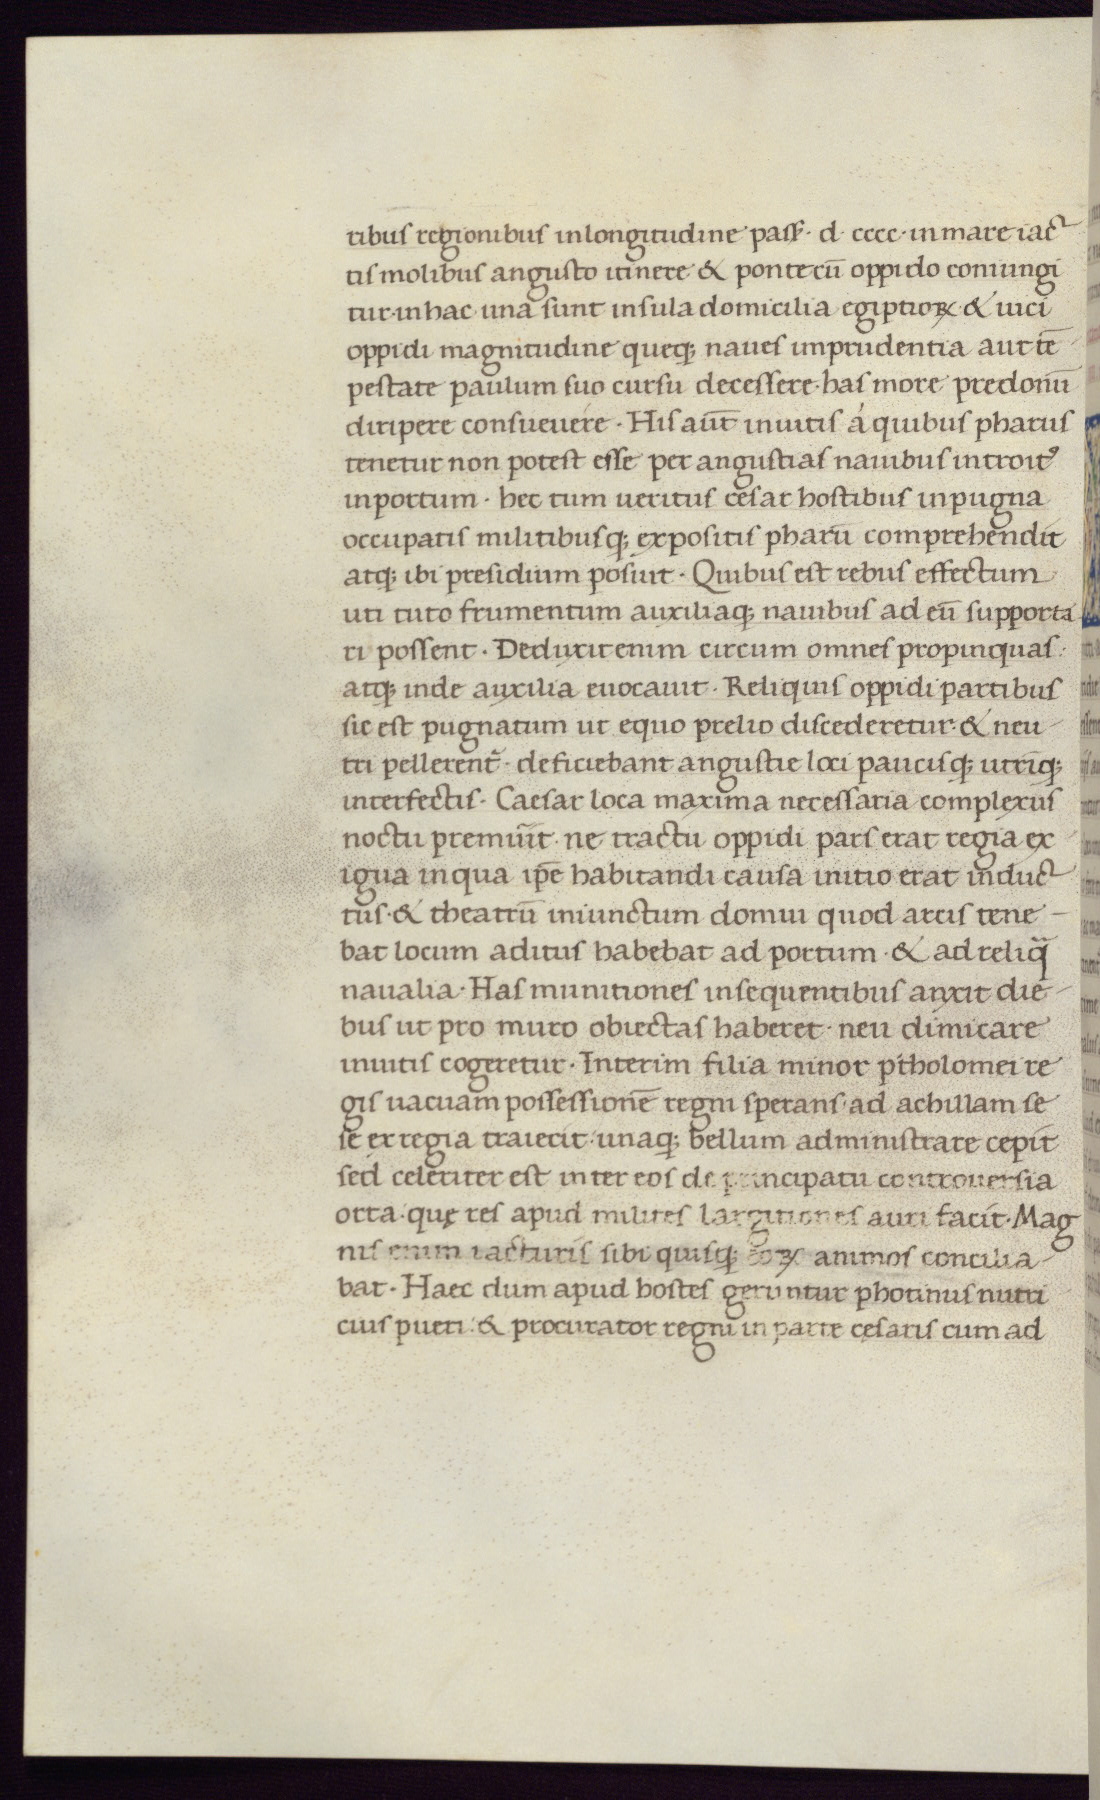 ribus regionibus in longitudine pass· d· cccc· in mare iac
tis molibus angusto itinere & ponte cū oppido coniungi
tur· in hac una sunt insula domicilia egiptioꝝ & uici
oppidi magnitudine queq; naues imprudentia aut tē
pestate paulum suo cursu decessere· has more predonū
diripere consueuere · His aūt inuitis á quibus pharus
tenetur non potest esse per angustias nauibus introitꝰ
in portum · hec tum ueritus cesar hostibus in pugna
occupatis militibusq; expositis pharū comprehendit
atq; ibi presidium posuit · Quibus est rebus effectum
uti tuto frumentum auxiliaq; nauibus ad eū supporta
ri possent · Deduxit enim circum omnes propinquas
atq; inde auxilia euocauit · Reliquis oppidi partibus
sic est pugnatum ut equo prelio discederetur· & neu
tri pellerent̄· deficiebant angustie loci paucisq; utrīq;
interfectis· Caesar loca maxima necessaria complexus
noctu premuīt ne tractu oppidi pars erat regia ex
igua in qua ip̄e habitandi causa initio erat induc
tus· & theatrū iniunctum domui quod arcis tene-
bat locum aditus habebat ad portum · & ad reliq̄
naualia· Has munitiones insequentibus auxit die-
bus ut pro muro obiectas haberet· neu dimicare
inuitis cogeretur · Interim filia minor ptholomei re
gis uacuam possessionē regni sperans· ad achillam se
se ex regia traiecit· unaq; bellum administrare cepit
sed celeriter est inter eos de principatu controuersia
orta· quę res apud milites largitiones auri facit· Mag
nis enim iacturis sibi quisq; eoꝝ animos concilia
bat· Haec dum apud hostes geruntur photinus nutri
cius pueri· & procurator regni in parte cęsaris cum ad